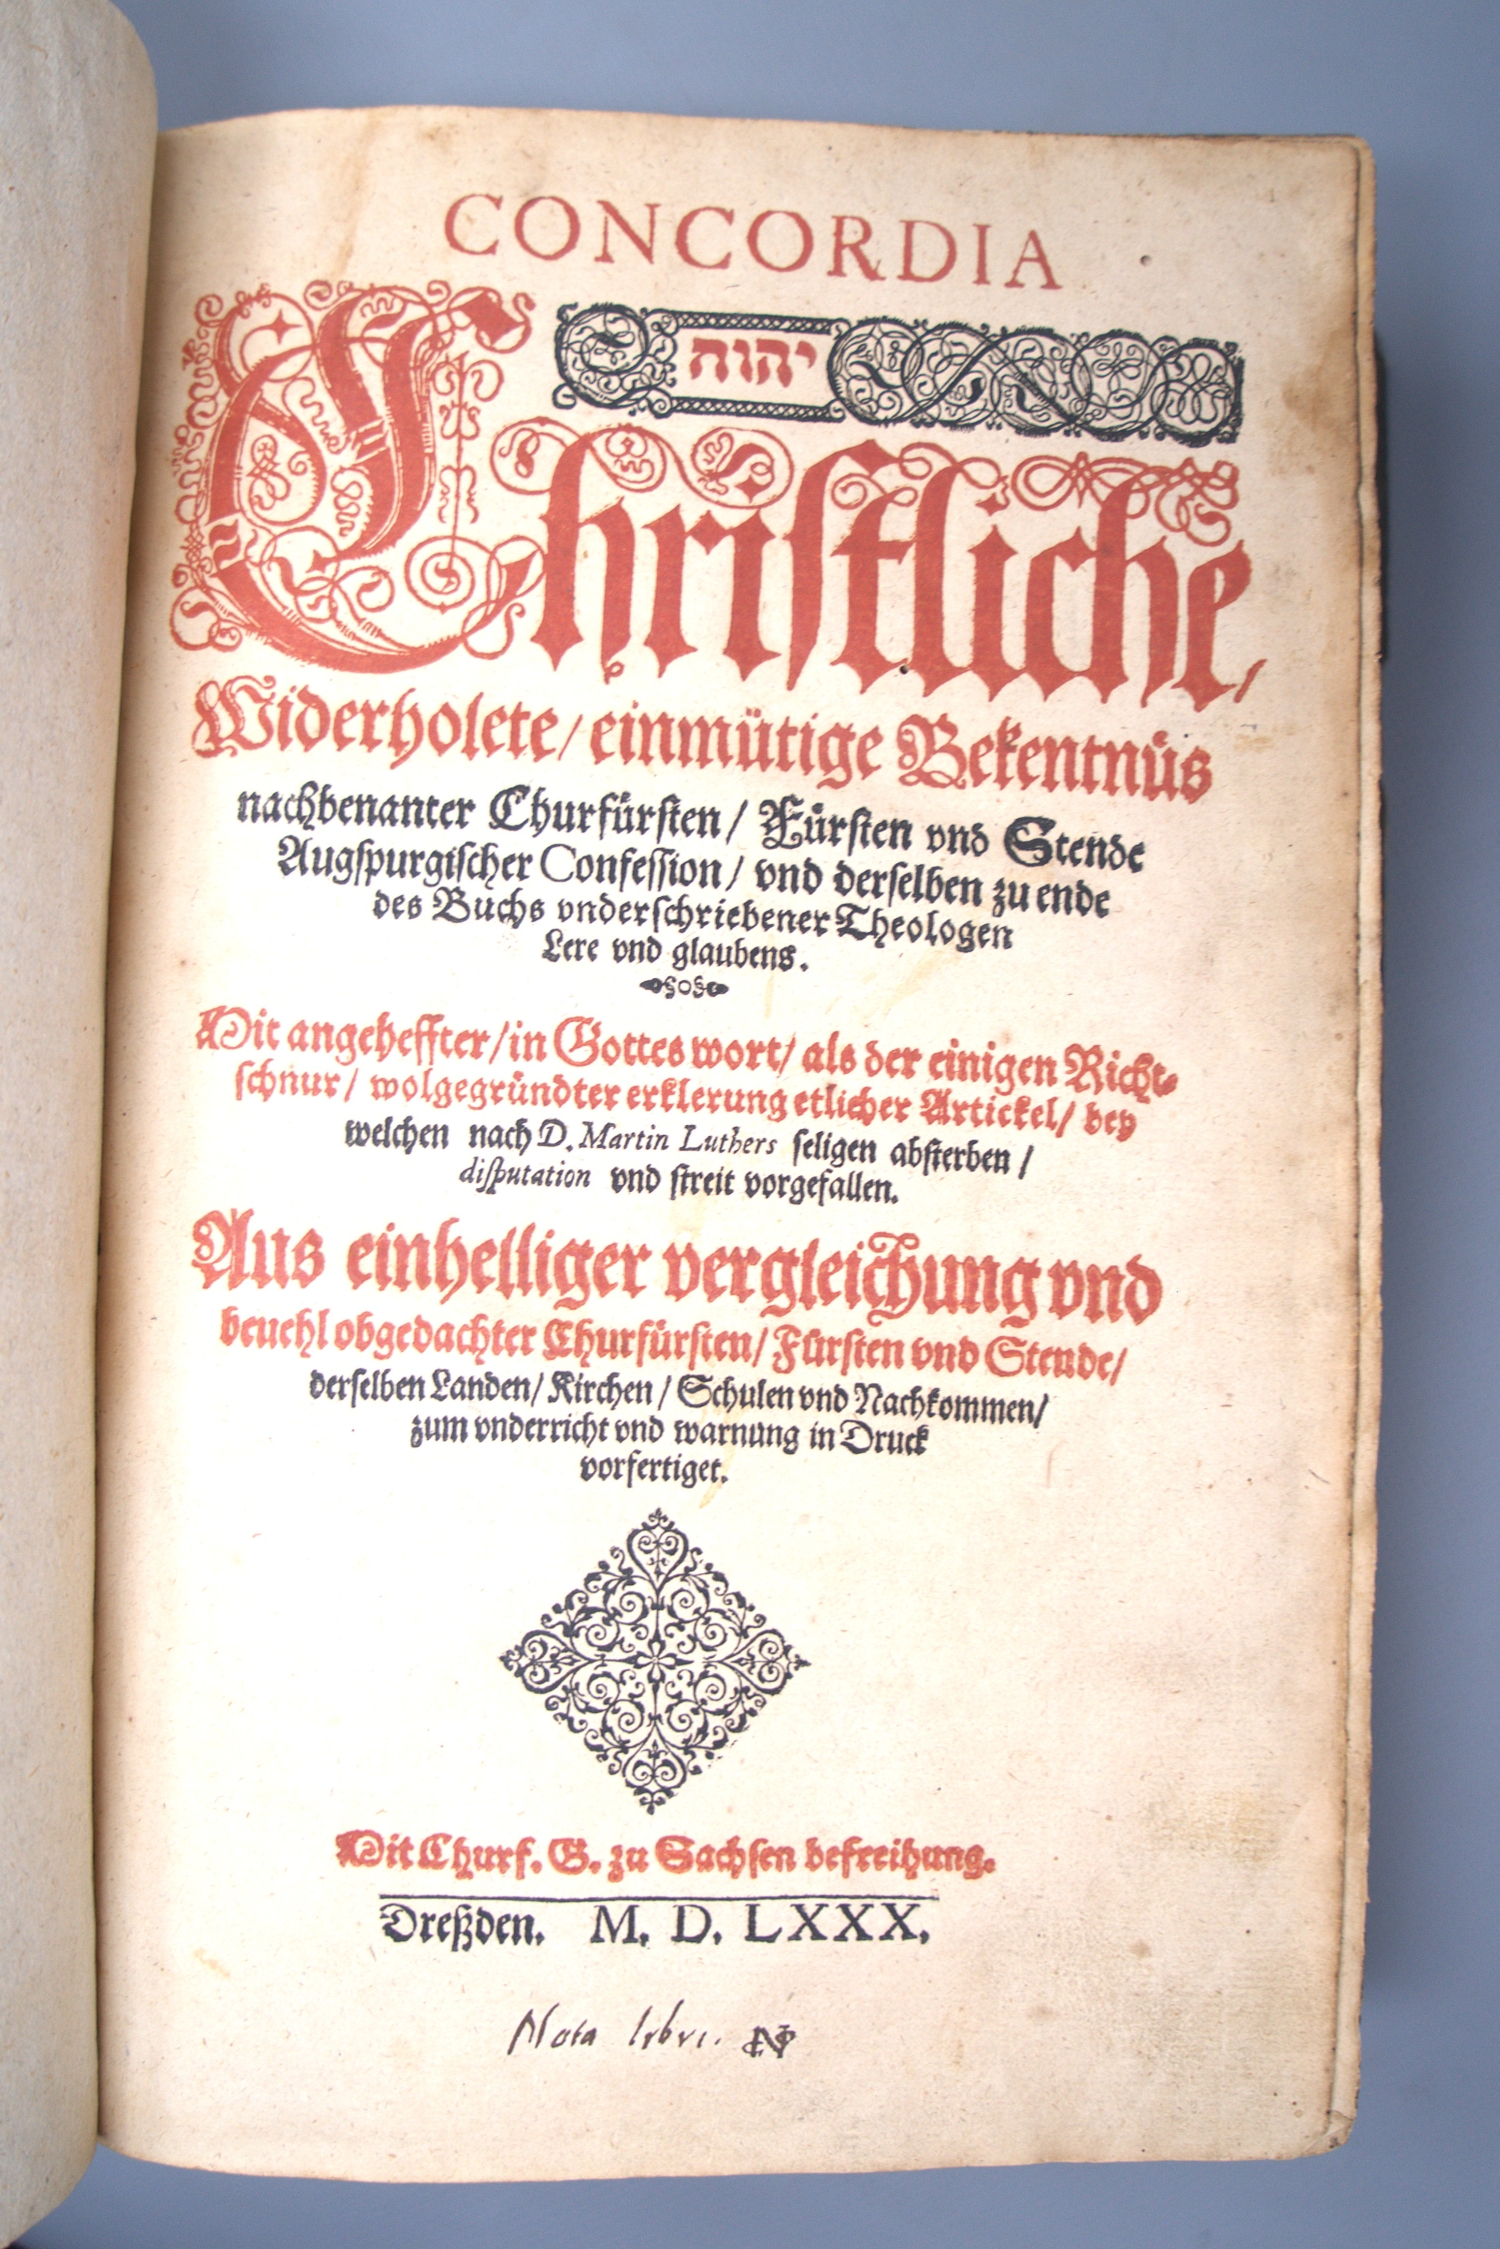 CONCORDIA
יהוה
Christliche,
Widerholete/ einmütige Bekentnüs
nachbenanter Churfürsten/ Fürsten vnd Stende
Augspurgischer Confession/ vnd derselben zu ende
des Buchs vnderschriebener Theologen
Lere vnd glaubens.
Mit angeheffter/ in Gottes wort/ als der einigen Richt-
schnur/ wolgegründter erklerung etlicher Artickel/ bey
welchen nach D. Martin Luthers seligen absterben/
disputation vnd streit vorgefallen.
Aus einhelliger vergleichung vnd
beuehl obgedachter Churfürsten/ Fürsten vnd Stende/
derselben Landen/ Kirchen/ Schulen vnd Nachkommen/
zum vnderricht vnd warnung in Druck
vorfertiget.
Mit Churf. G. zu Sachsen befreihung.
Dreßden. M. D. LXXX.
Nota